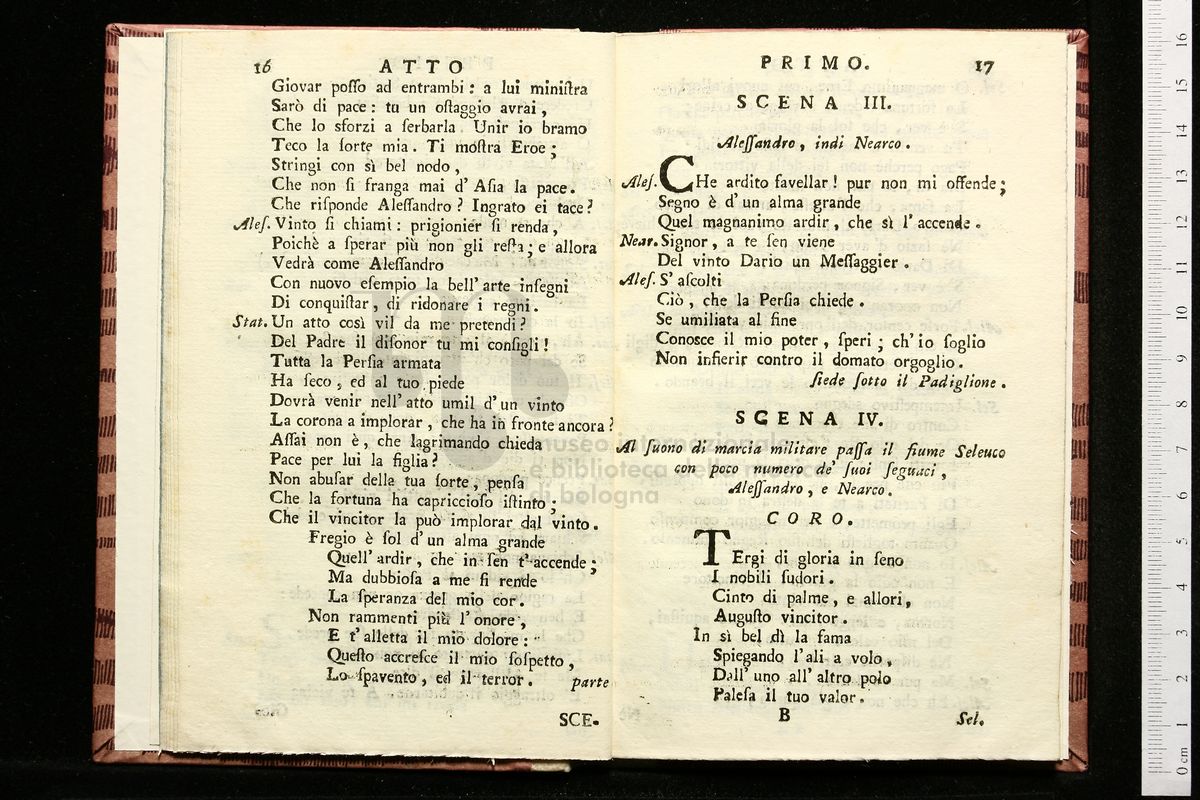 16 ATTO
Giovar posso ad entrambi: a lui ministra
Sarò di pace: tu un ostaggio avrai,
Che lo sforzi a serbarla. Unir io bramo
Teco la sorte mia. Ti mostra Eroe;
Stringi con sì bel nodo,
Che non si franga mai d'Asia la pace.
Che risponde Alessandro? Ingrato ei tace?
Ales. Vinto si chiami: prigionier si renda,
Poichè a sperar più non gli resta; e allora
Vedrà come Alessandro
Con nuovo esempio la bell'arte insegni
Di conquistar, di ridonare i regni.
Stat. Un atto così vil da me pretendi?
Del Padre il disonor tu mi consigli!
Tutta la Persia armata
Ha seco, ed al tuo piede
Dovrà venir nell'atto umil d'un vinto
La corona a implorar, che ha in fronte ancora?
Assai non è, che lagrimando chieda
Pace per lui la figlia?
Non abusar della tua sorte, pensa
Che la fortuna ha capriccioso istinto;
Che il vincitor la può implorar dal vinto.
Fregio è sol d'un alma grande
Quell'ardir, che in sen t'accende;
Ma dubbiosa a me si rende
La speranza del mio cor.
Non rammenti più l'onore,
E t'alletta il mio dolore:
Questo accresce il mio sospetto,
Lo spavento, ed il terror. parte
SCE-
PRIMO. 17
SCENA III.
Alessandro, indi Nearco.
Ales. CHe ardito favellar! pur non mi offende;
Segno è d'un alma grande
Quel magnanimo ardir, che sì l'accende.
Near. Signor, a te sen viene
Del vinto Dario un Messaggier.
Ales. S'ascolti
Ciò, che la Persia chiede.
Se umiliata al fine
Conosce il mio poter, speri; ch'io soglio
Non infierir contro il domato orgoglio.
siede sotto il Padiglione.
SCENA IV.
Al suono di marcia militare passa il fiume Seleuco
con poco numero de' suoi seguaci,
Alessandro, e Nearco.
CORO.
Tergi di gloria in seno
I nobili sudori.
Cinto di palme, e allori,
Augusto vincitor.
In sì bel dì la fama
Spiegando l'ali a volo,
Dall'uno all'altro polo
Palesa il tuo valor.
B Sel.
museo internazionale
e biblioteca della musica
di bologna
0 cm 1 2 3 4 5 6 7 8 9 10 11 12 13 14 15 16